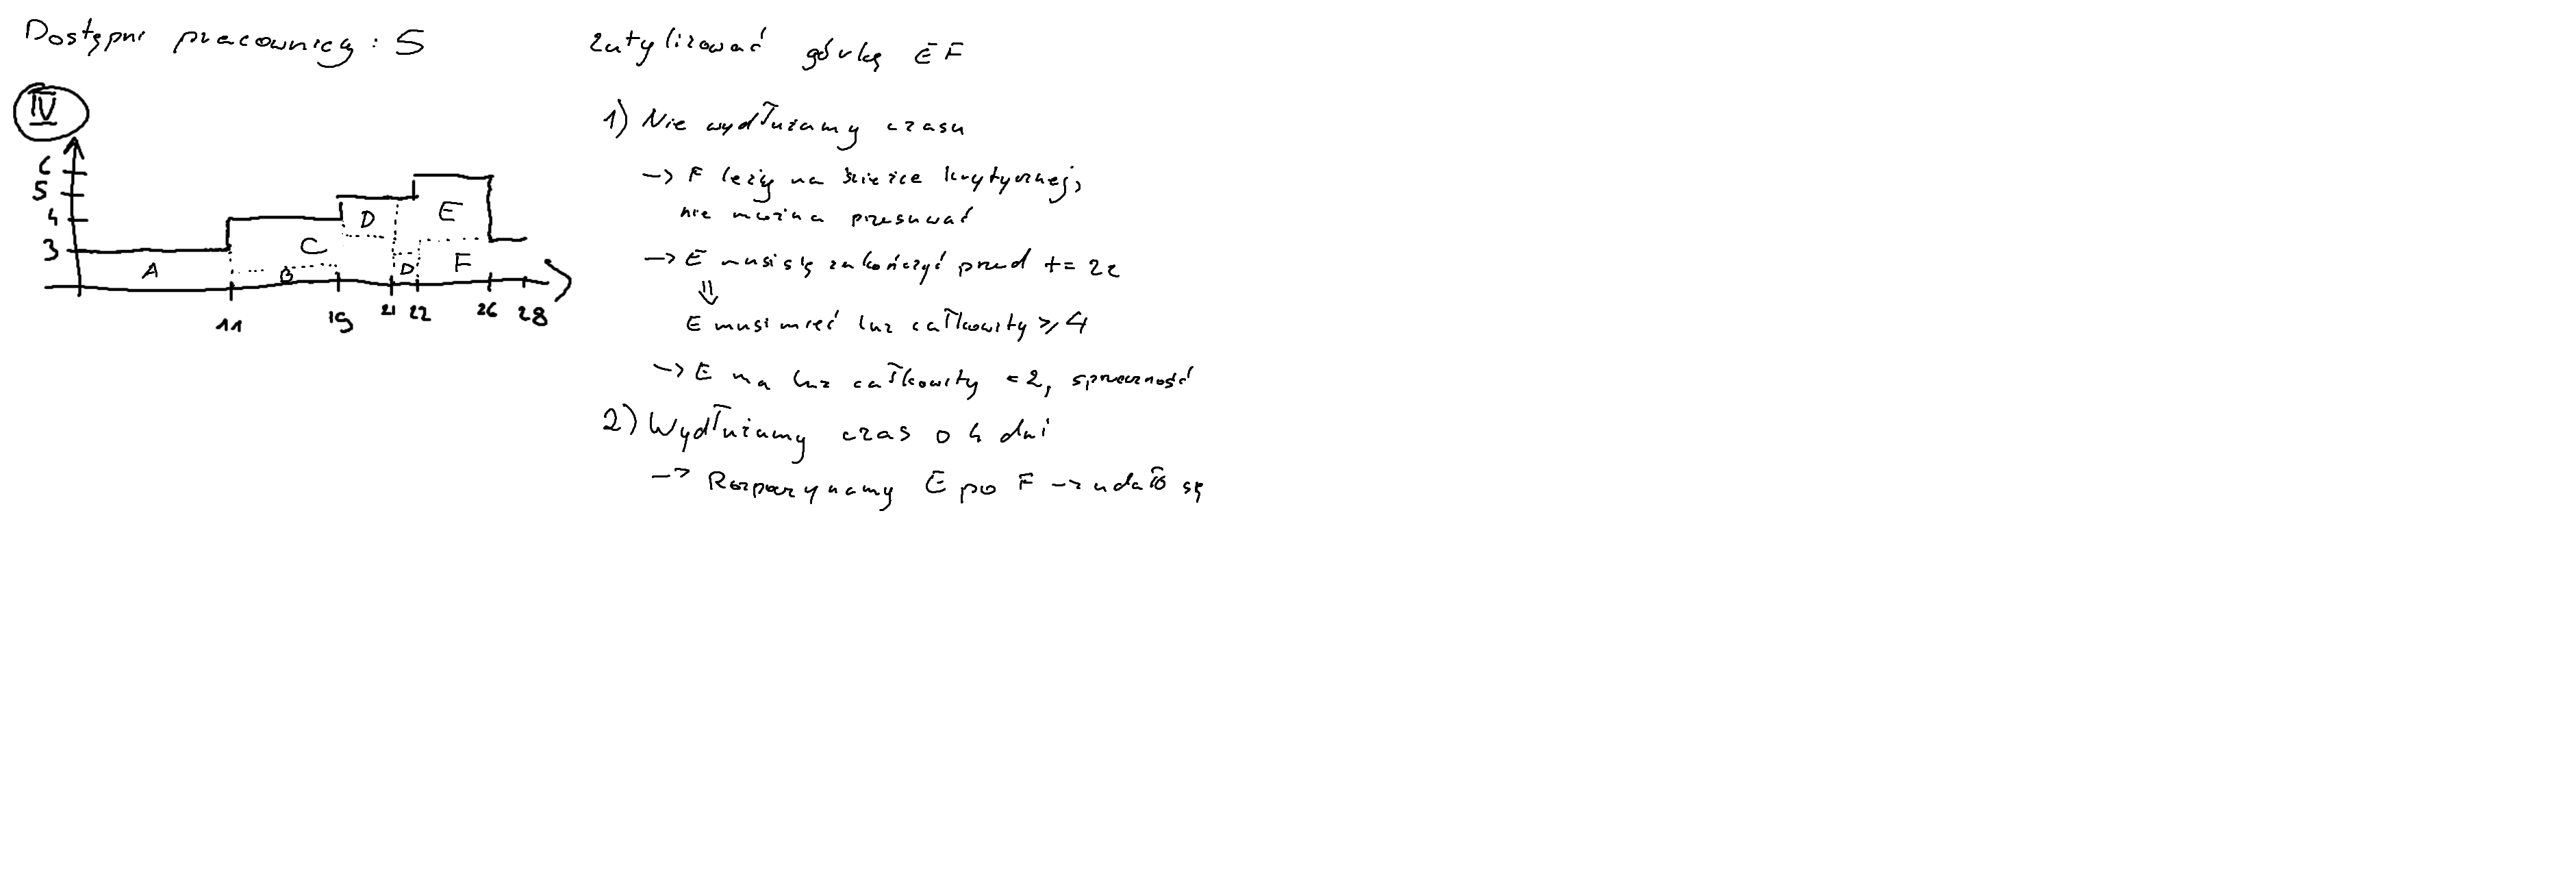 Dostępni pracownicy: 5
zutylizować górkę EF
IV
6
5
4
3
A
B
C
D
D
E
F
11
19
21
22
26
28
1) Nie wydłużamy czasu
-> F leży na ścieżce krytycznej,
nie można przesuwać
-> E musi się zakończyć przed t= 22
⇓
E musi mieć luz całkowity ≥ 4
-> E ma luz całkowity = 2, sprzeczność
2) Wydłużamy czas o 4 dni
-> Rozpoczynamy E po F -> udało się